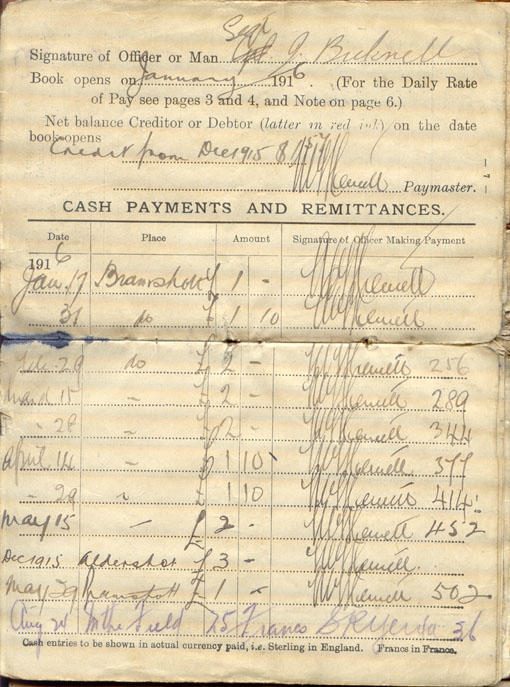 Sgt
Signature of Officer or Man J. Bicknell
Book opens on January 1916. (For the Daily Rate
of Pay see pages 3 and 4, and Note on page 6.)
Net balance Creditor or Debtor (latter in red ink) on the date
book opens
Credit from Dec 1915
Paymaster.
CASH PAYMENTS AND REMITTANCES.
Date Place Amount Signature of Officer Making Payment
1916
Jan. 17 Bramshott £ 1 -
31 do £ 1 10
Feb. 29 do £ 2 - 256
March 15 " £ 2 - 289
" 28 " £ 2 - 344
April 14 " £ 1 10 377
" 29 " £ 1 10 414
May 15 " £ 2 - 452
Dec 1915 Aldershot £ 3 -
May 29 Bramshott £ 1 - 502
Aug In the Field 75 Francs 36
Cash entries to be shown in actual currency paid, i.e. Sterling in England. Francs in France.